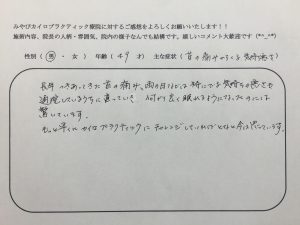 みやびカイロプラクティック療院に対するご感想をよろしくお願いいたします!!
施術内容、院長の人柄・雰囲気、院内の様子なんでも結構です。嬉しいコメント大歓迎です (*^_^*)
性別 ( 男 ・ 女 ) 年齢 ( 49 才 ) 主な症状 ( 首の痛みからくる気持悪さ )
長年つきあってきた首の痛みや、雨の日などは特にでる気持ちの悪さも
通院しているうちに直っていき、何より良く眠れるようになったのには
驚いています。
もっと早くカイロプラクティックにチャレンジしていればとなと今は思っています。